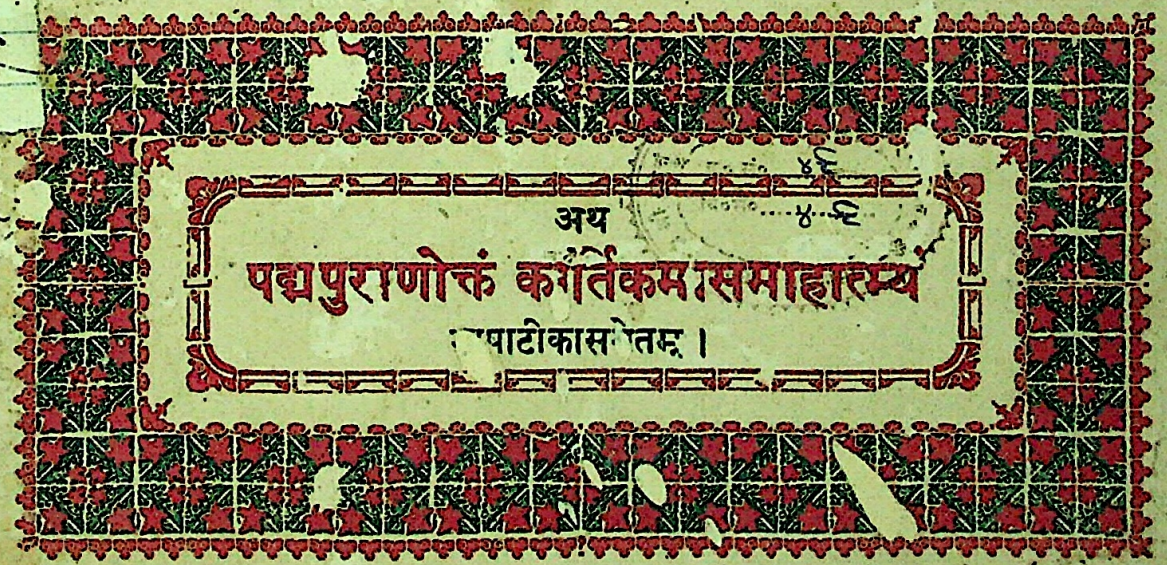 ४६
४६
अथ
पद्मपुराणोक्तं कार्तिकमासमाहात्म्यं
भाषाटीकासमेतम् ।